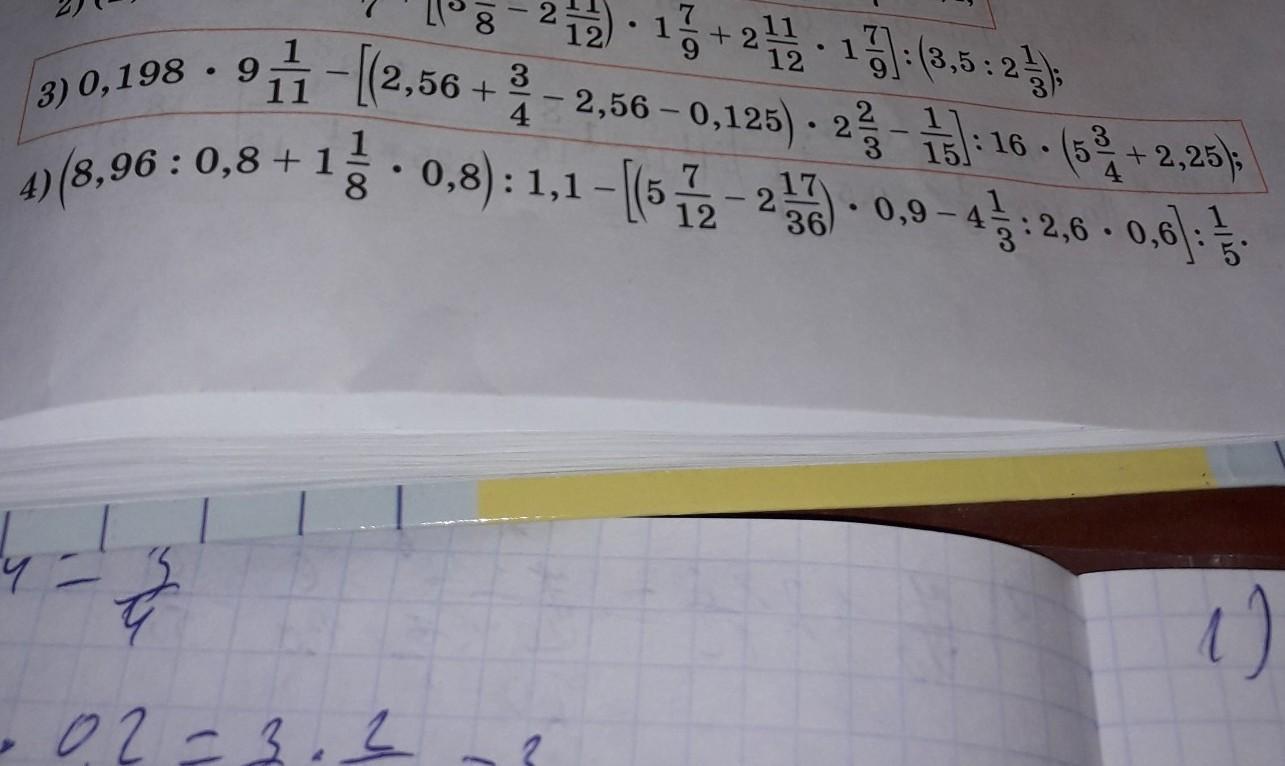 8 − 2 11/12) · 1 7/9 + 2 11/12 · 1 7/9] : (3,5 : 2 1/3);
3) 0,198 · 9 1/11 − [(2,56 + 3/4 − 2,56 − 0,125) · 2 2/3 − 1/15] : 16 · (5 3/4 + 2,25);
4) (8,96 : 0,8 + 1 1/8 · 0,8) : 1,1 − [(5 7/12 − 2 17/36) · 0,9 − 4 1/3 : 2,6 · 0,6] : 1/5.
= 3/4
1)
· 02 = 3 · 2